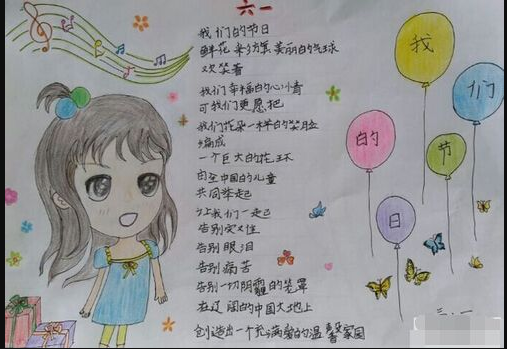 六一
我们的节日
鲜花 美丽的气球
欢笑着
我们幸福的心情
可我们更愿把
我们花朵一样的笑脸
编成
一个巨大的花环
由全中国的儿童
共同举起
让我们一起
告别灾难
告别眼泪
告别痛苦
告别一切阴霾的笼罩
在辽阔的中国大地上
创造出一个充满爱的温馨家园
我
们
的
节
日
三.一